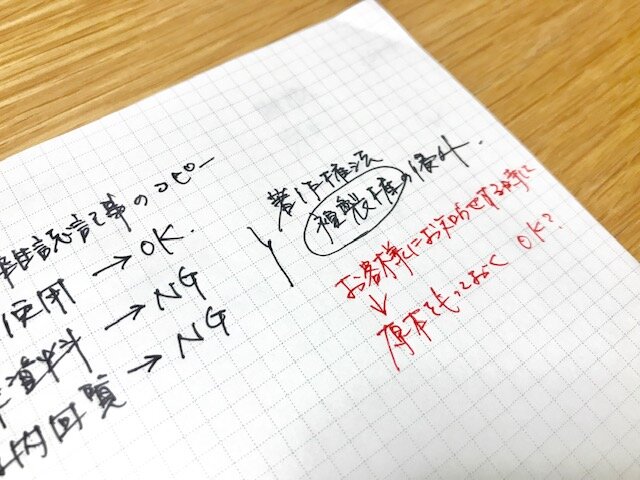 雑誌記事のコピー
使用 → OK.
資料 → NG
内回覧 → NG
著作権法
複製権の侵害.
お客様にお知らせする時に
↓
原本をもっておく OK?